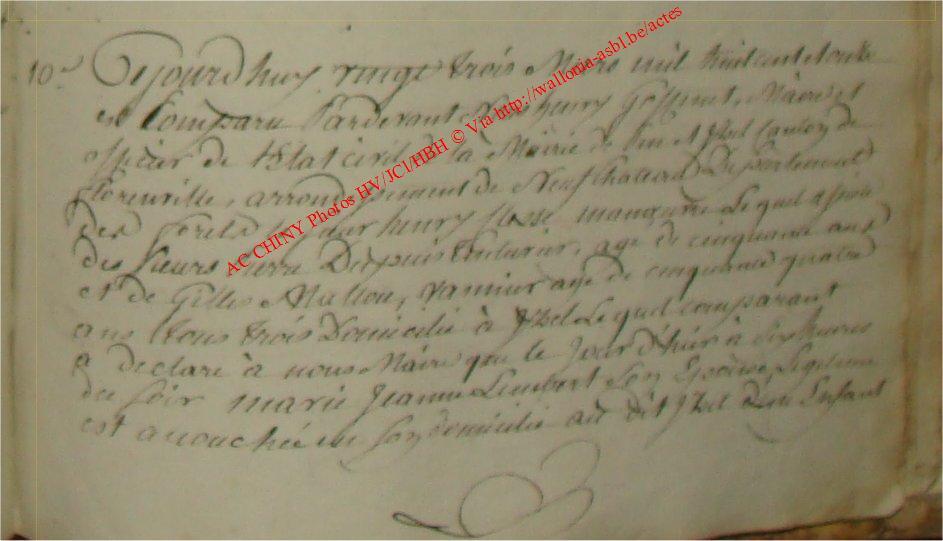 10e Cejourdhuy vingt trois Mars mil huit cent douze
est Comparu Pardevant Nous henry Maire et
officier de l'Etat civil de la Mairie de Pin et Izel Canton de
florenville, arrondissement de Neufchateau Departement
des forets le Sieur henry manœuvre Lequel assisté
des Sieurs Pierre Dupuis Couturier, agé de cinquante ans
et de Gilles Mallou, vannier agé de cinquante quatre
ans tous trois Domicilié à Izel Lequel comparant
a declaré à nous Maire que le Jour d'hier à Six heures
du soir marie Jeanne Lambert Son Epouse Legitime
est accouchée en Son domicile au dit Izel d'un Enfant
AC CHINY Photos HV/JCI/HBH © Via http://wallonia-asbl.be/actes